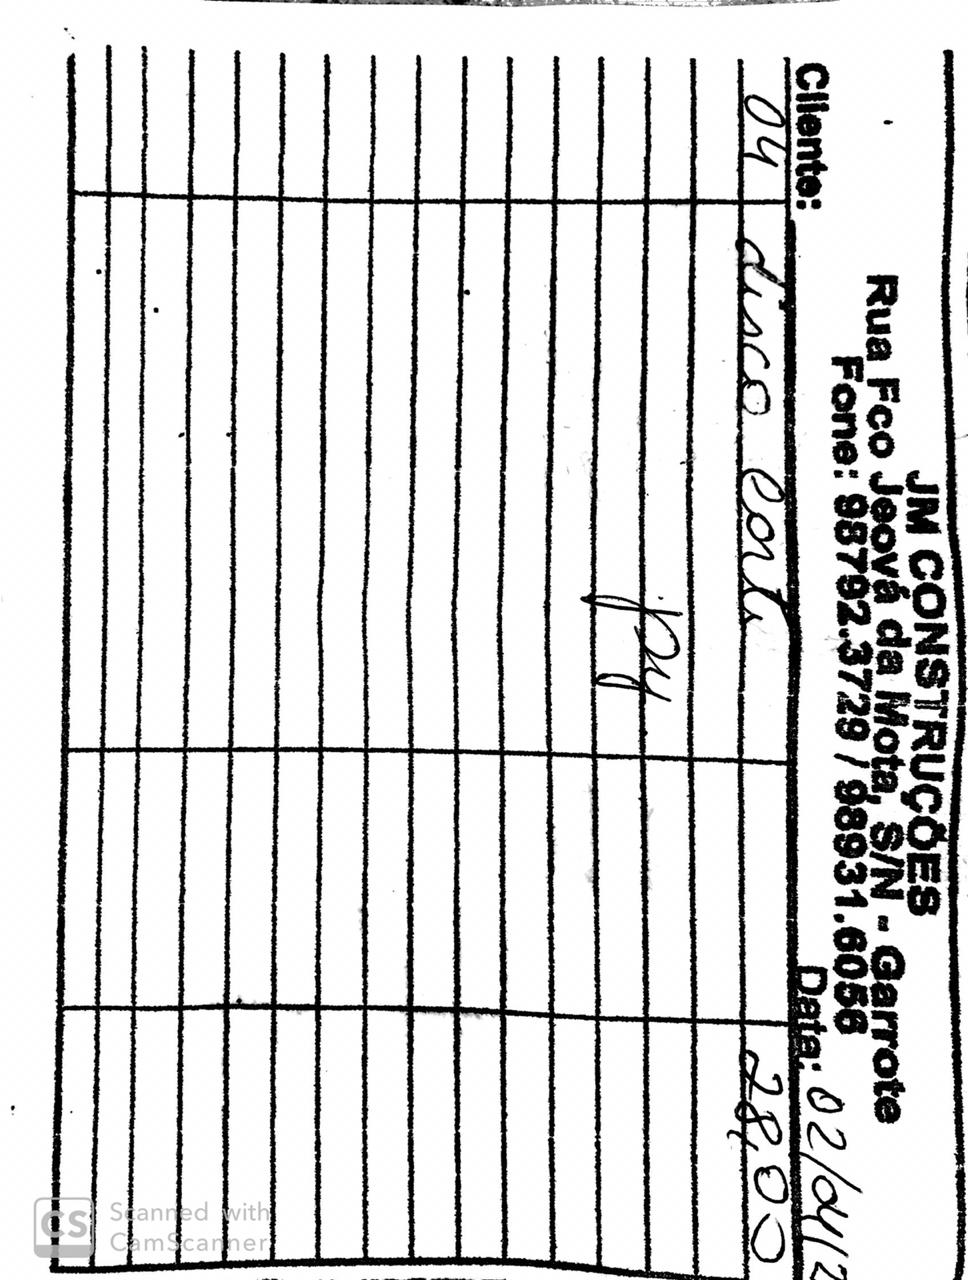 JM CONSTRUÇÕES
Rua Fco Jeová da Mota, S/N - Garrote
Fone: 98792.3729 / 98931.6056
Cliente: Data: 02/04/2
04 disco cort 28,00
Scanned with
CamScanner